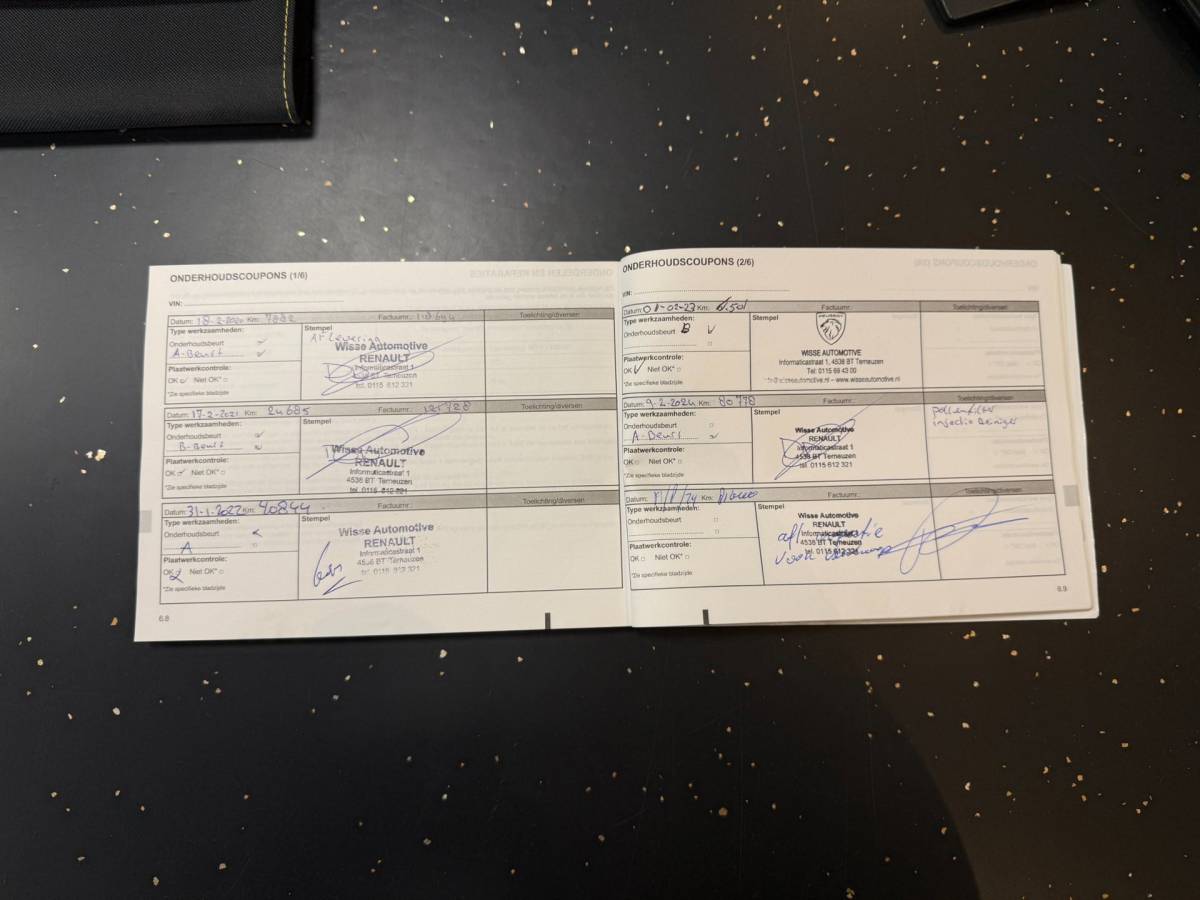 ONDERHOUDSCOUPONS (1/6)
VIN:
Datum: 18-2-2020 Km: 7882 Factuurnr.:
Toelichting/diversen
Type werkzaamheden:
Onderhoudsbeurt
A-Beurt
Plaatwerkcontrole:
OK Niet OK*
*Zie specifieke bladzijde
Stempel
Aflevering
Wisse Automotive
RENAULT
Informaticastraat 1
Terneuzen
tel. 0115 612 321
Datum: 17-2-2021 Km: 24685 Factuurnr.:
Toelichting/diversen
Type werkzaamheden:
Onderhoudsbeurt
B-Beurt
Plaatwerkcontrole:
OK Niet OK*
*Zie specifieke bladzijde
Stempel
Wisse Automotive
RENAULT
Informaticastraat 1
4538 BT Terneuzen
tel. 0115 612 321
Datum: 31-1-2022 Km: 40844 Factuurnr.:
Toelichting/diversen
Type werkzaamheden:
Onderhoudsbeurt
A
Plaatwerkcontrole:
OK Niet OK*
*Zie specifieke bladzijde
Stempel
Wisse Automotive
RENAULT
Informaticastraat 1
4538 BT Terneuzen
tel. 0115 612 321
6.8
ONDERHOUDSCOUPONS (2/6)
VIN:
Datum: 01-02-23 Km: Factuurnr.:
Toelichting/diversen
Type werkzaamheden:
Onderhoudsbeurt B
Plaatwerkcontrole:
OK Niet OK*
*Zie specifieke bladzijde
Stempel
PEUGEOT
WISSE AUTOMOTIVE
Informaticastraat 1, 4538 BT Terneuzen
Tel. 0115 69 43 00
www.wisseautomotive.nl
Datum: 9-2-2024 Km: 80778 Factuurnr.:
Toelichting/diversen
Type werkzaamheden:
Onderhoudsbeurt
A-Beurt
Plaatwerkcontrole:
OK Niet OK*
*Zie specifieke bladzijde
Stempel
Wisse Automotive
RENAULT
Informaticastraat 1
4538 BT Terneuzen
tel. 0115 612 321
pollenfilter
injectie Reiniger
Datum: Km: Factuurnr.:
Toelichting/diversen
Type werkzaamheden:
Onderhoudsbeurt
Plaatwerkcontrole:
OK Niet OK*
*Zie specifieke bladzijde
Stempel
Wisse Automotive
RENAULT
Informaticastraat 1
4538 BT Terneuzen
tel. 0115 612 321
6.9